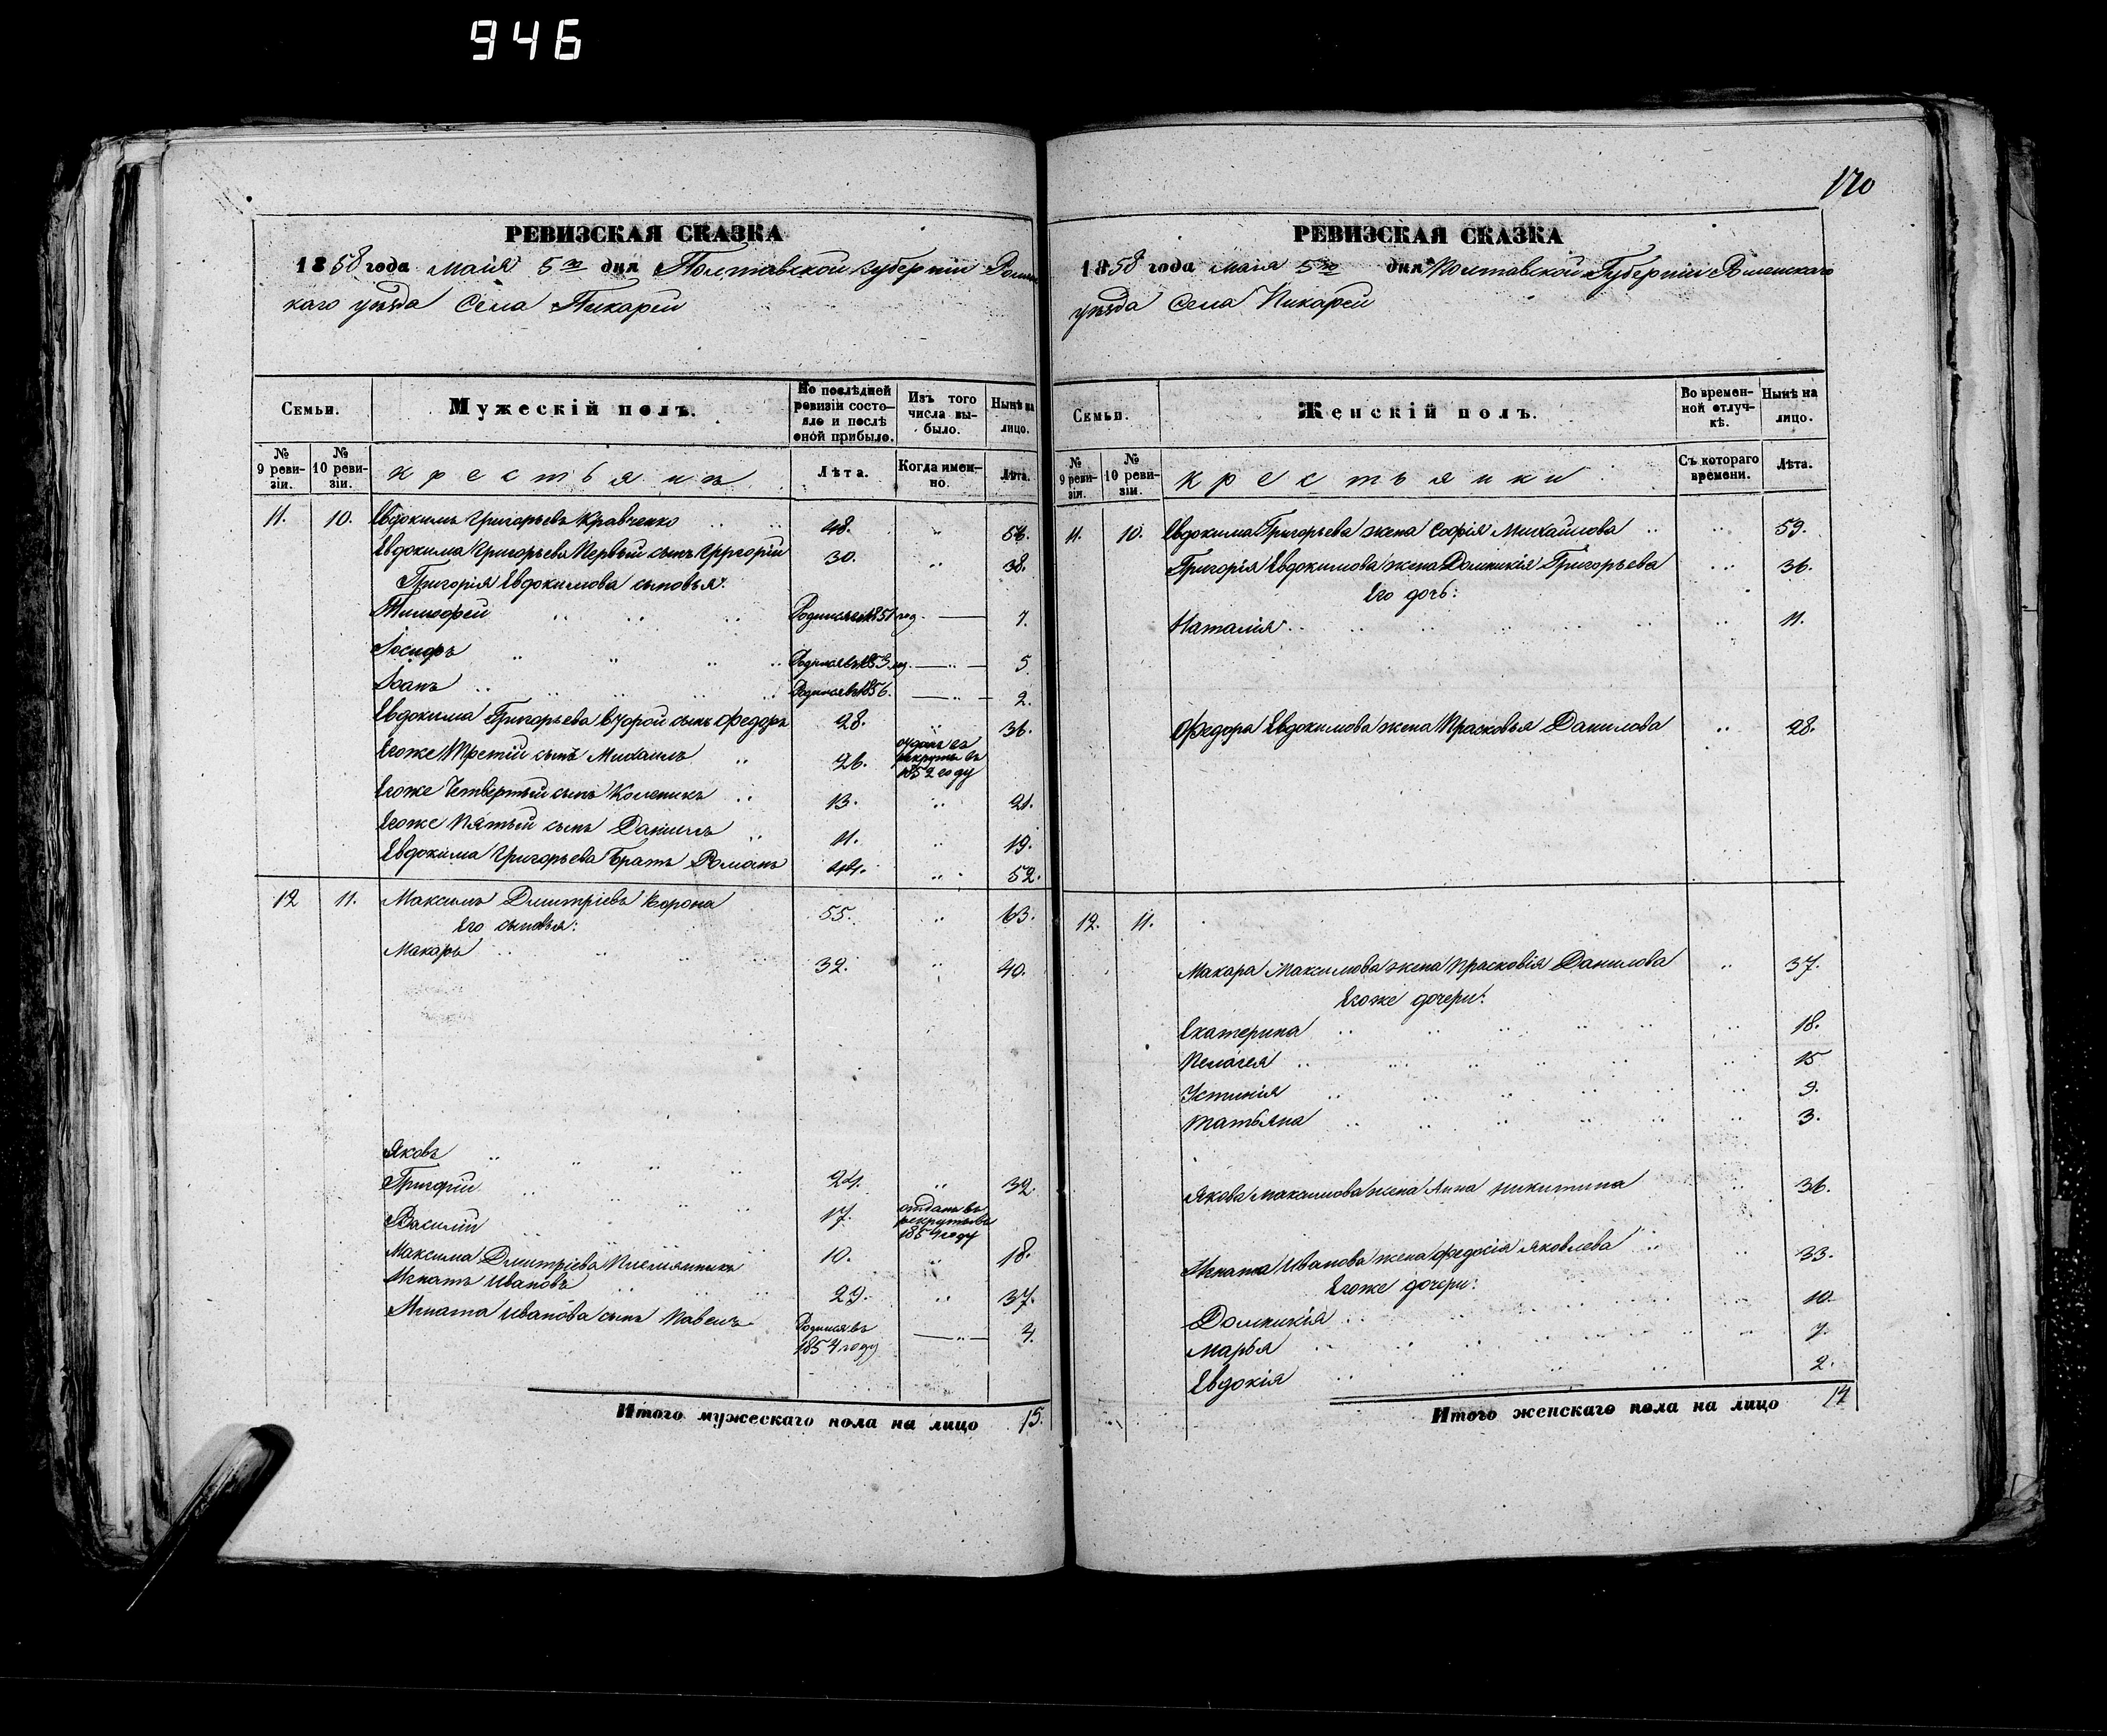 946
120
РЕВИЗСКАЯ СКАЗКА
1858 года Маія 5го дня Полтавской губерніи Ромен
каго уѣзда Села Пикарей
Семьи.
Мужескій полъ.
По послѣдней ревизіи состояло и послѣ оной прибыло.
Изъ того числа выбыло.
Нынѣ на лицо.
№ 9 ревизіи.
№ 10 ревизіи.
крестьянъ
Лѣта.
Когда именно.
Лѣта.
11. 10. Евдокимъ Григорьевъ Кравченко 48. " 56.
Евдокима Григорьева Первый сынъ Григорій 30. " 38.
Григорія Евдокимова сыновья:
Тимофей Родился 1851 год. — 7.
Іосифъ Родился въ 1853 го. — " — 5
Іоанъ Родился въ 1856. — " — 2.
Евдокима Григорьева второй сынъ Федоръ 28. " 36.
Егоже Третій сынъ Михаилъ 26. отданъ въ рекруты въ 1852 году
Егоже Четвертый сынъ Коленикъ 13. " 21.
Егоже Пятый сынъ Даніилъ 11. " 19.
Евдокима Григорьева Братъ Романъ 44. " 52.
12 11. Максимъ Дмитріевъ Корона 55. " 63.
Его сыновья:
Макаръ 32. " 40.
Яковъ 24. " 32.
Григорій 17. отданъ въ рекруты въ 1854 году
Василій 10. " 18.
Максима Дмитріева Племянникъ
Игнатъ Ивановъ 29. " 37.
Игната Иванова сынъ Павелъ Родился въ 1854 году — " — 4.
Итого мужескаго пола на лицо 15.
РЕВИЗСКАЯ СКАЗКА
1858 года Маія 5го дня Полтавской Губерніи Роменскаго
уѣзда Села Пикарей
Семьи.
Женскій полъ.
Во временной отлучкѣ.
Нынѣ на лицо.
№ 9 ревизіи.
№ 10 ревизіи.
крестьянки
Съ котораго времени.
Лѣта.
11. 10. Евдокима Григорьева жена Софія Михайлова " 59.
Григорія Евдокимова жена Домникія Григорьева " 36.
Его дочь:
Наталія " 11.
Федора Евдокимова жена Прасковья Данилова " 28.
12. 11.
Макара Максимова жена Прасковія Данилова " 37.
Егоже дочери:
Екатерина " 18.
Пелагея " 15
Устинія " 9.
Татьяна " 3.
Якова Максимова жена Анна Никитина " 36.
Игната Иванова жена Федосія Яковлева " 33.
Егоже дочери:
Домникія " 10.
Марья " 7.
Евдокія " 2.
Итого женскаго пола на лицо 14